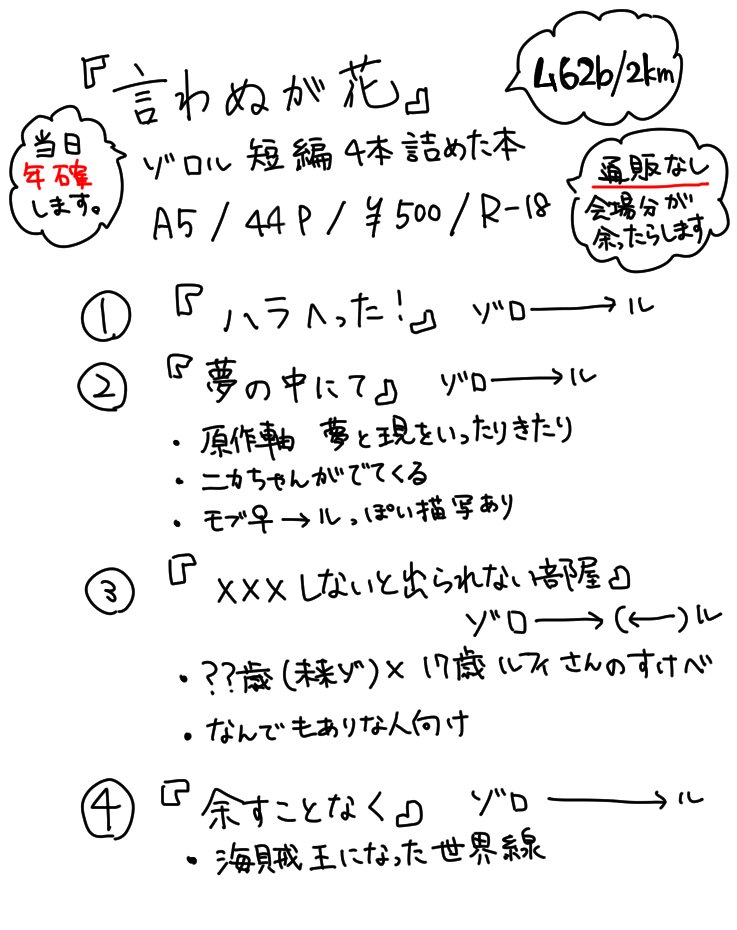 『言わぬが花』
462b/2km
当日
年確
します。
ゾロル 短編 4本詰めた本
A5 / 44P / ¥500 / R-18
通販なし
会場分が
余ったらします
① 『ハラへった!』 ゾロ→ル
② 『夢の中にて』 ゾロ→ル
・原作軸 夢と現をいったりきたり
・ニカちゃんがでてくる
・モブ♀→ルっぽい描写あり
③ 『×××しないと出られない部屋』
ゾロ→(←)ル
・??歳(未来ゾ)× 17歳ルフィさんのすけべ
・なんでもありな人向け
④ 『余すことなく』 ゾロ→ル
・海賊王になった世界線